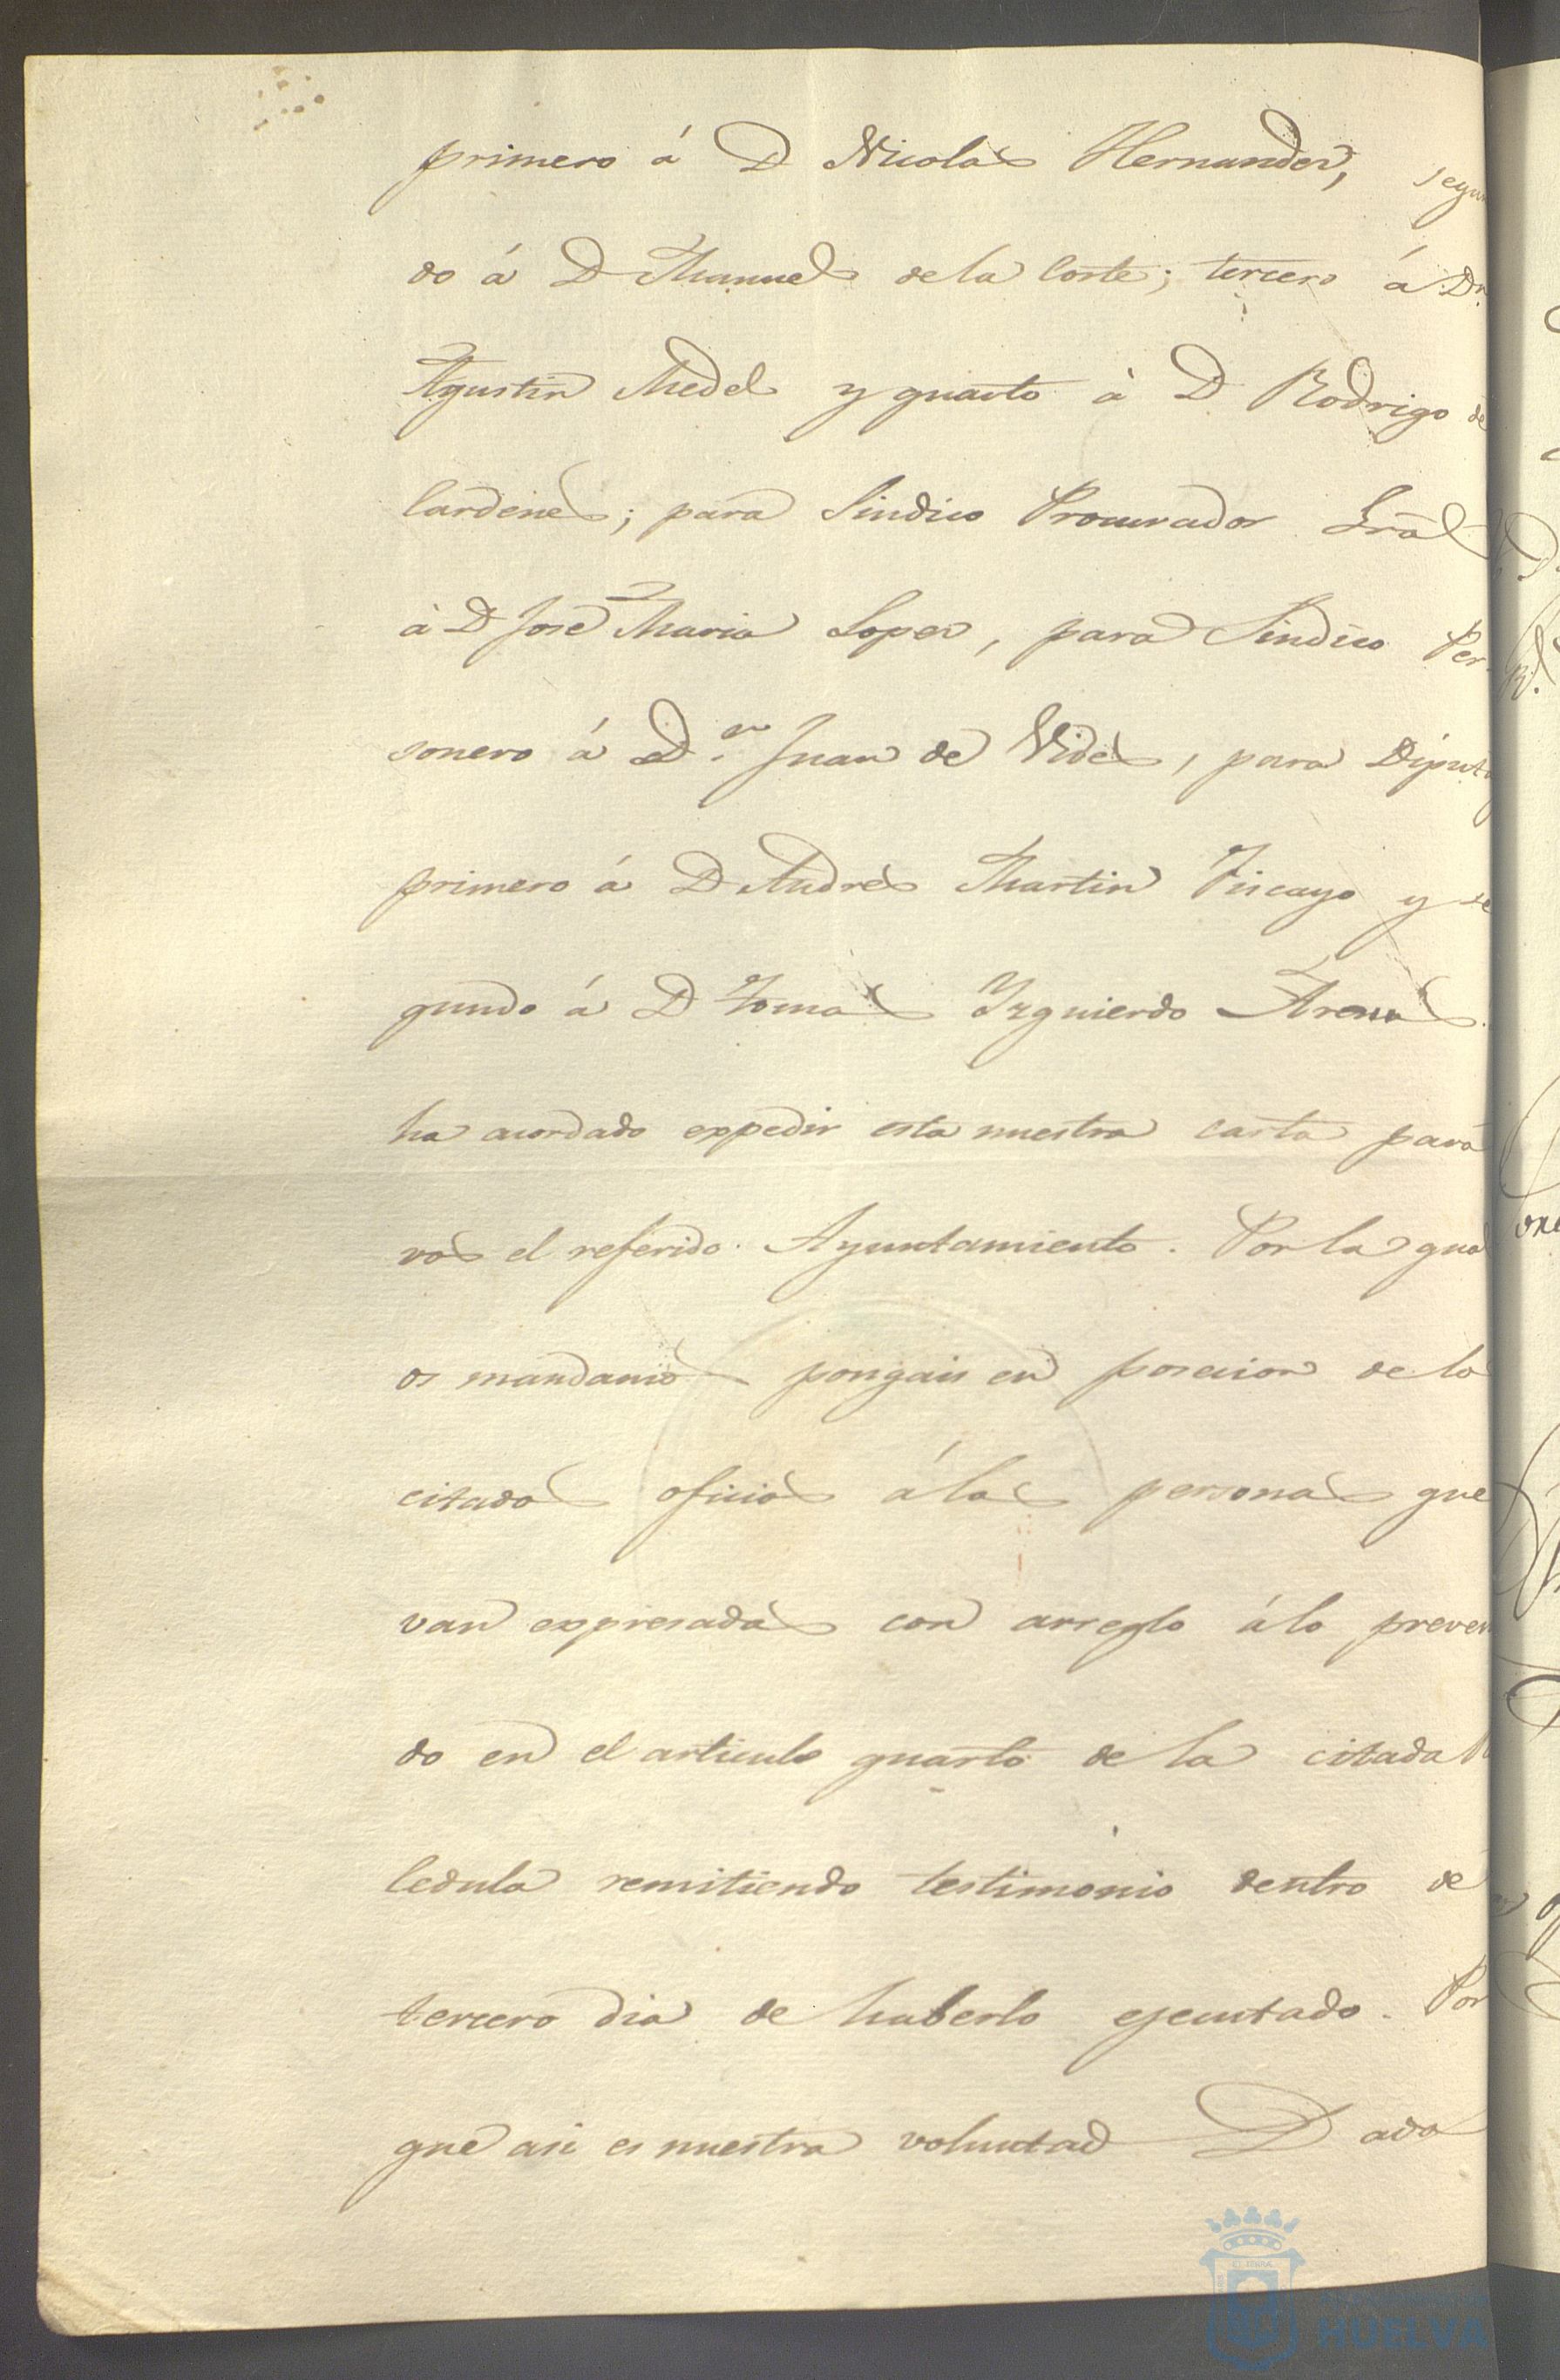 primero á D Nicolas Hernandez, segun
do á D Manuel de la Corte; tercero á Dn
Agustin Medel y quarto à D Rodrigo de
Cardenes; para Sindico Procurador Gral
à D José Maria Lopez, para Sindico Per-
sonero á D.n Juan de Vides, para Diput
primero á D Andres Martin Viscayo y se
gundo á D Tomas Izquierdo Arenas
ha acordado expedir esta nuestra carta para
vos el referido Ayuntamiento. Por la qual
os mandamos pongais en posecion de lo
citados oficios á las personas que
van expresadas con arreglo á lo preven
do en el articulo quarto de la citada
Cedula remitiendo testimonio dentro de
tercero dia de haberlo ejecutado. Por
que asi es nuestra voluntad Dada
HUELVA